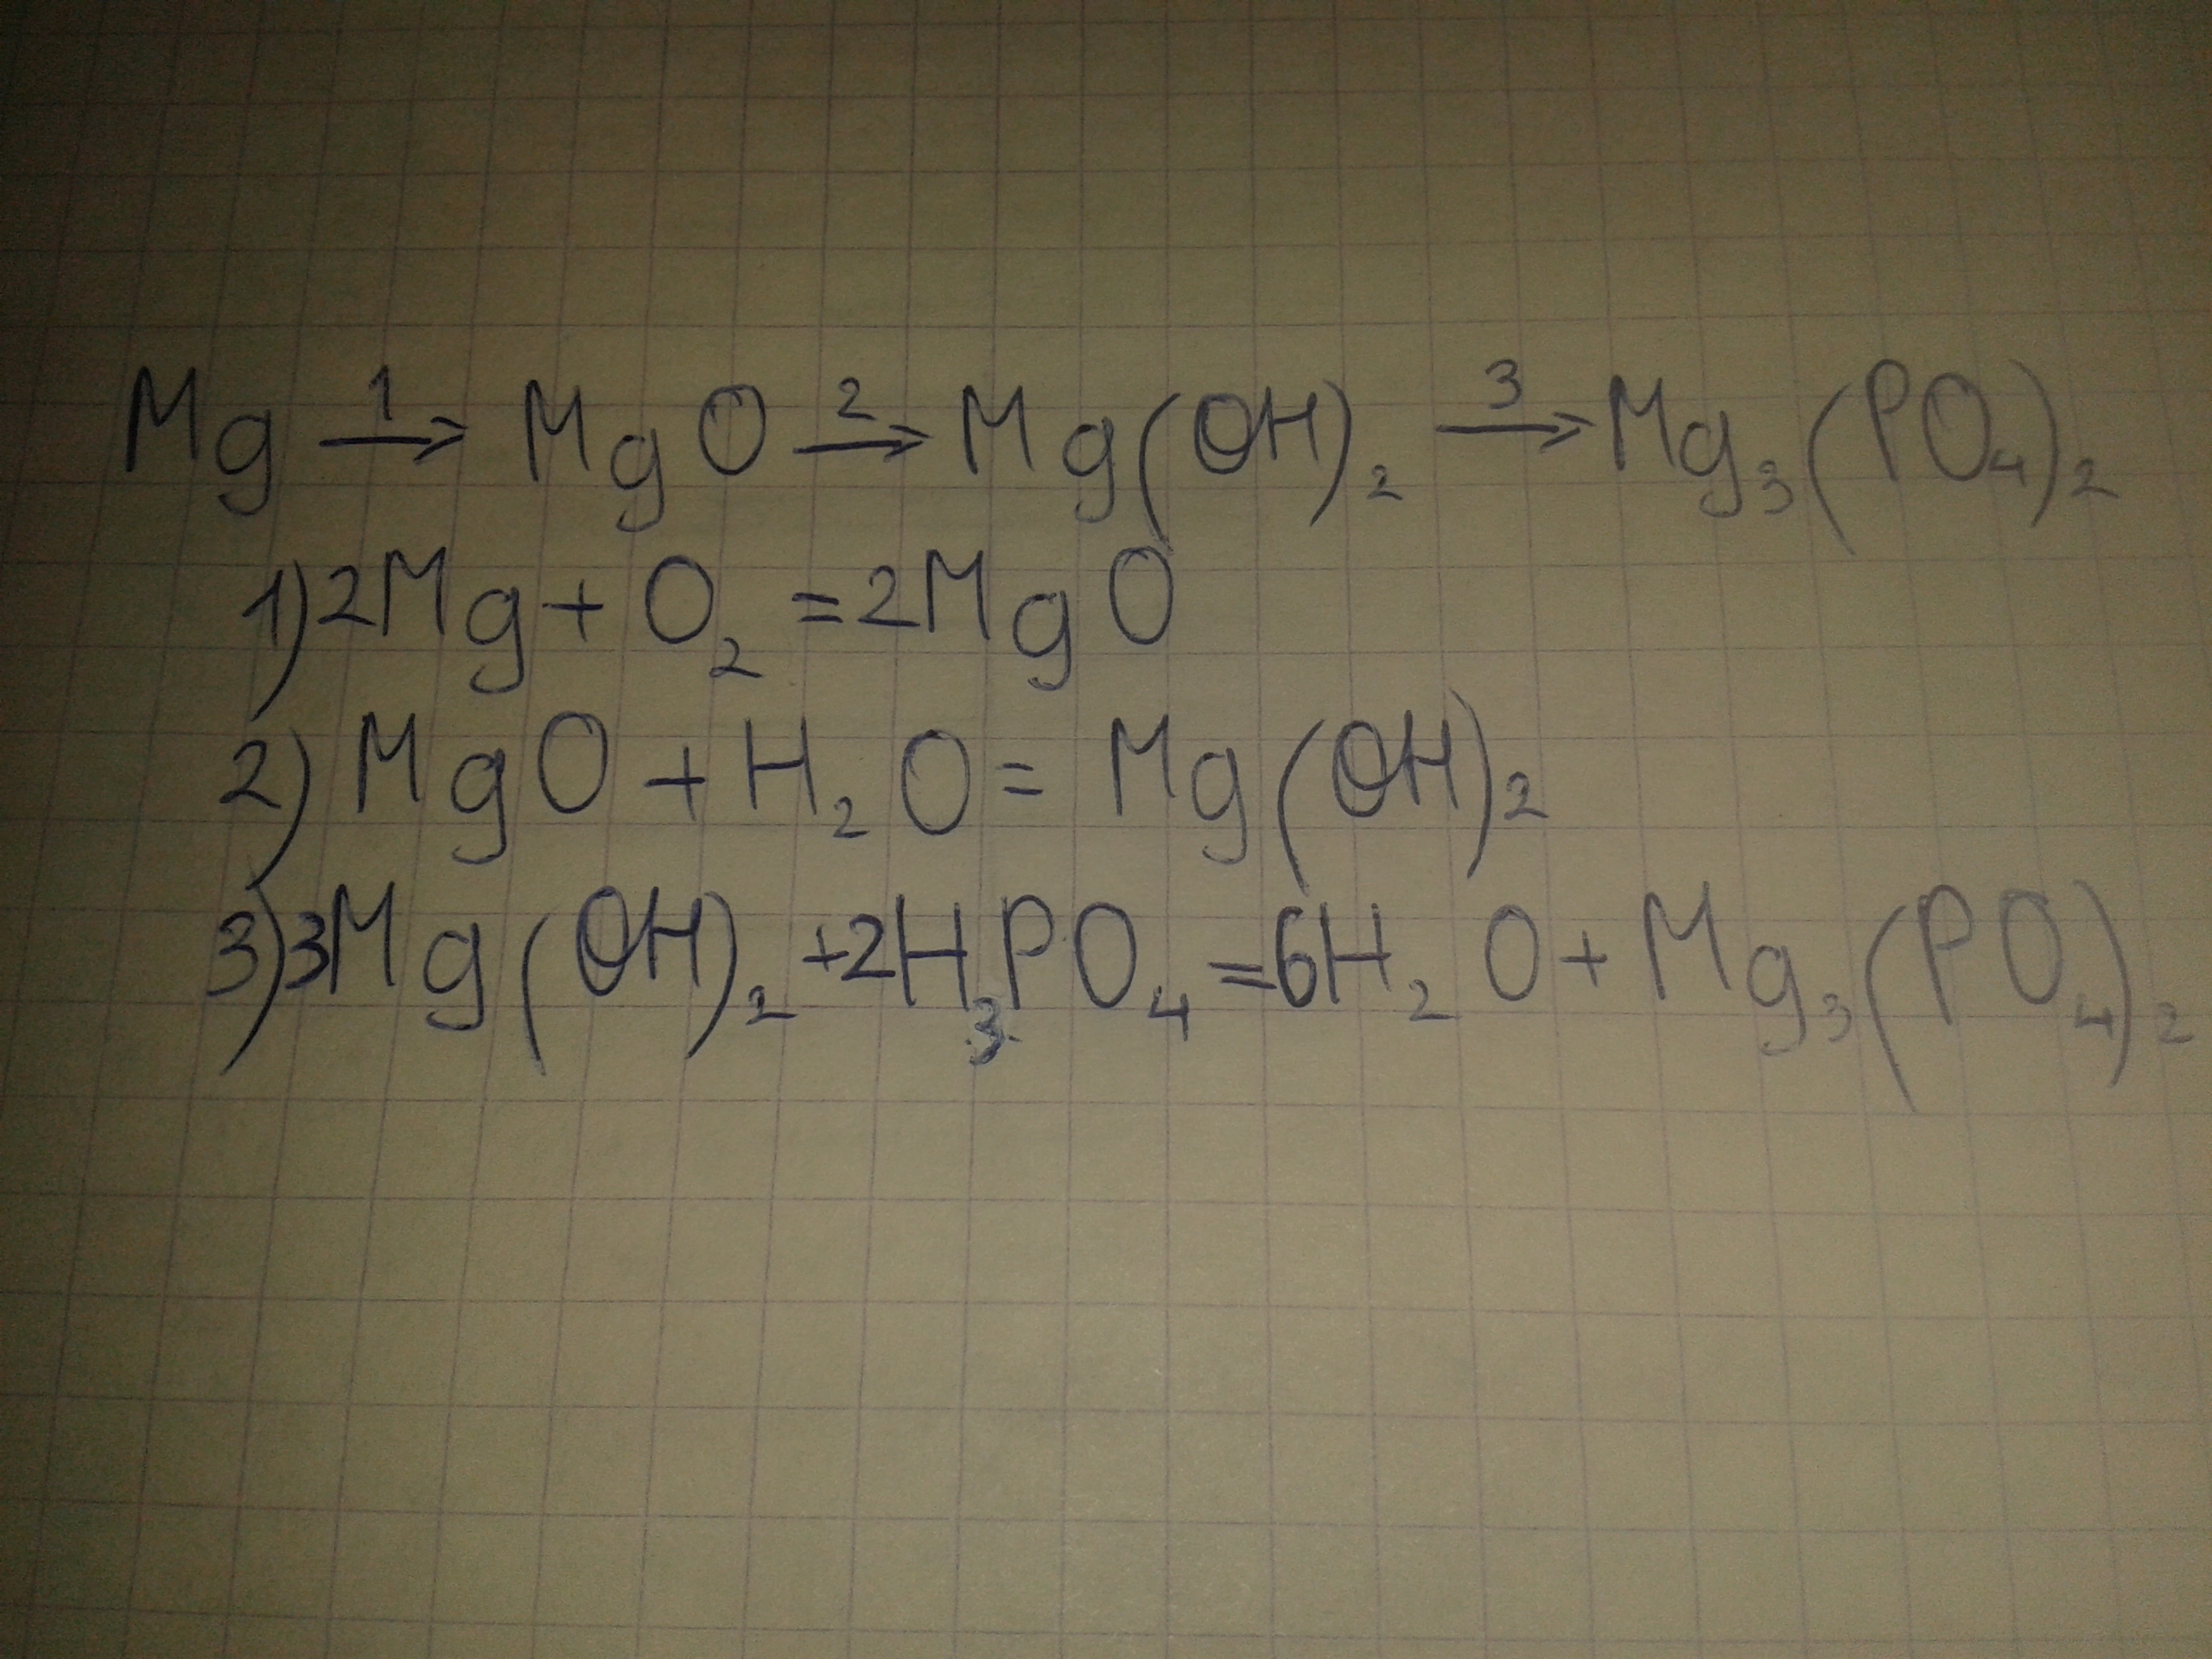 Mg —1→ MgO —2→ Mg(OH)₂ —3→ Mg₃(PO₄)₂
1) 2Mg + O₂ = 2MgO
2) MgO + H₂O = Mg(OH)₂
3) 3Mg(OH)₂ + 2H₃PO₄ = 6H₂O + Mg₃(PO₄)₂